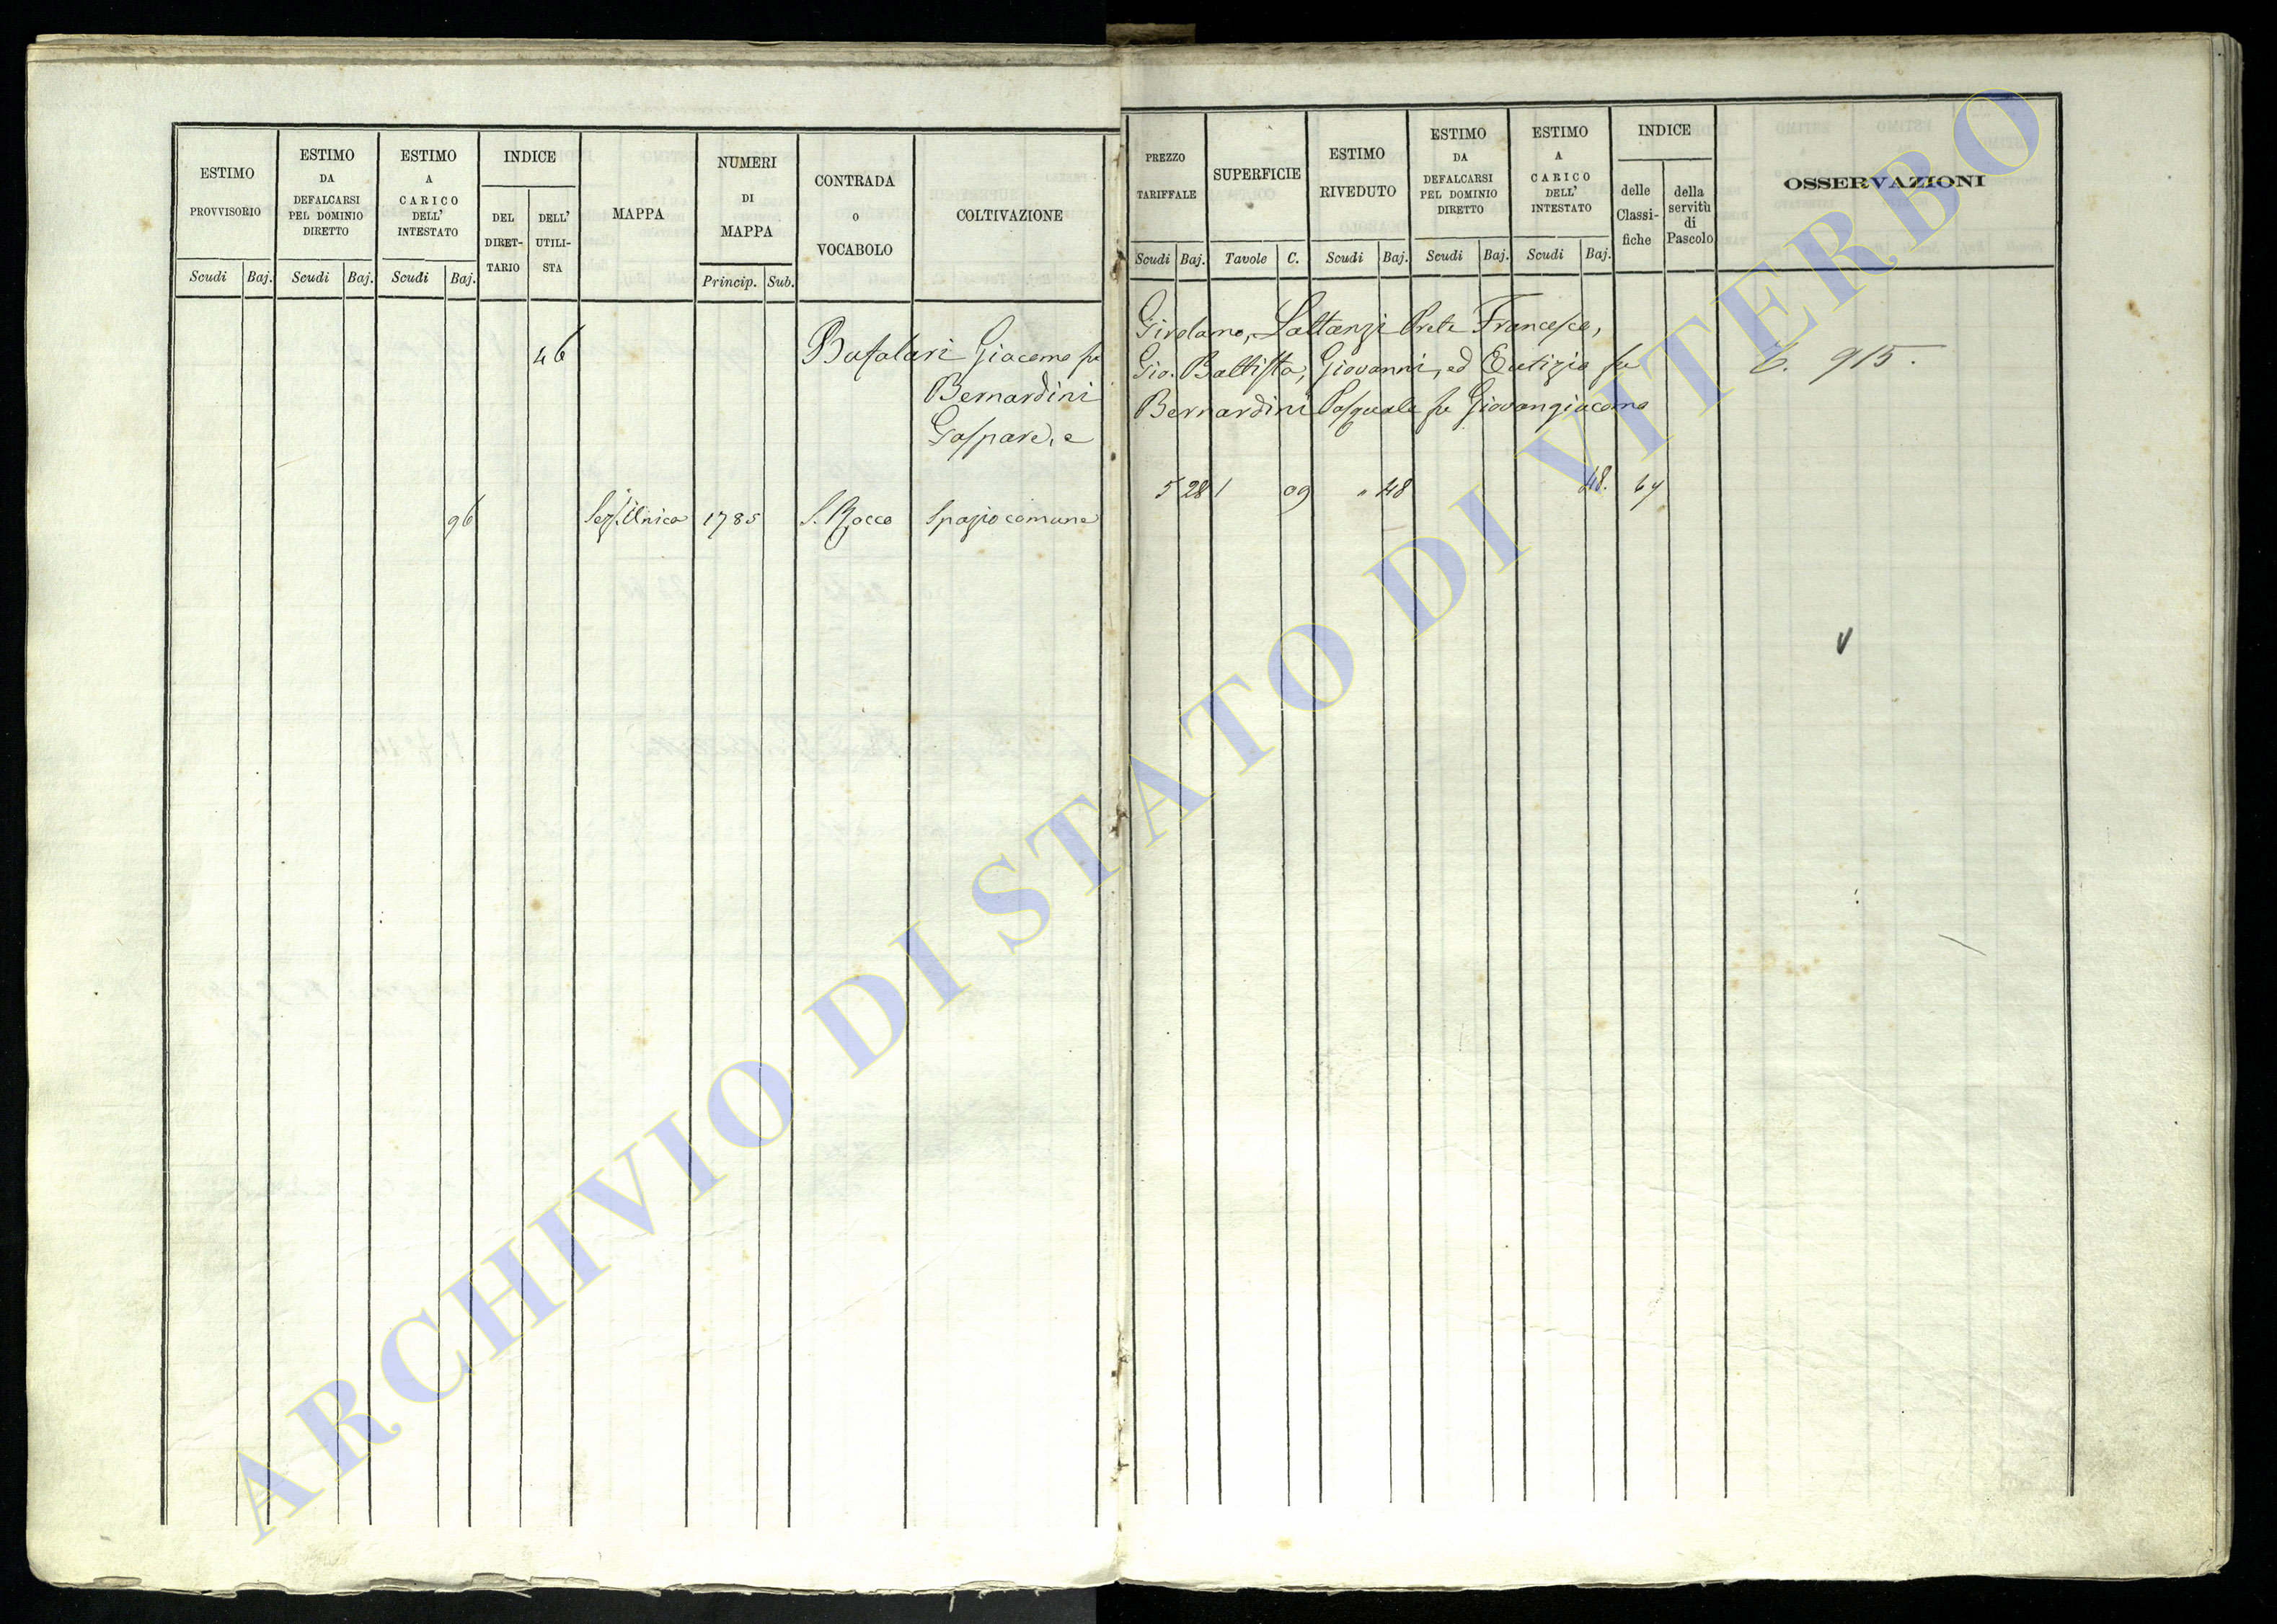 ESTIMO
PROVVISORIO
Scudi Baj.
ESTIMO
DA
DEFALCARSI
PEL DOMINIO
DIRETTO
Scudi Baj.
ESTIMO
A
CARICO
DELL'
INTESTATO
Scudi Baj.
INDICE
DEL
DIRET-
TARIO
DELL'
UTILI-
STA
MAPPA
NUMERI
DI
MAPPA
Princip. Sub.
CONTRADA
O
VOCABOLO
COLTIVAZIONE
46 Bafalari Giacomo fu
Bernardini
Gaspare, e
96 Sez. Unica 1785 S. Rocco Spazio comune
PREZZO
TARIFFALE
Scudi Baj.
SUPERFICIE
Tavole C.
ESTIMO
RIVEDUTO
Scudi Baj.
ESTIMO
DA
DEFALCARSI
PEL DOMINIO
DIRETTO
Scudi Baj.
ESTIMO
A
CARICO
DELL'
INTESTATO
Scudi Baj.
INDICE
delle
Classi-
fiche
della
servitù
di
Pascolo
OSSERVAZIONI
Girolamo, Lattanzi Prete Francesco,
Gio. Battista, Giovanni, ed Eutizio fu
Bernardini Pasquale fu Giovangiacomo
915.
5 28 1 09 " 48 48. 64
ARCHIVIO DI STATO DI VITERBO